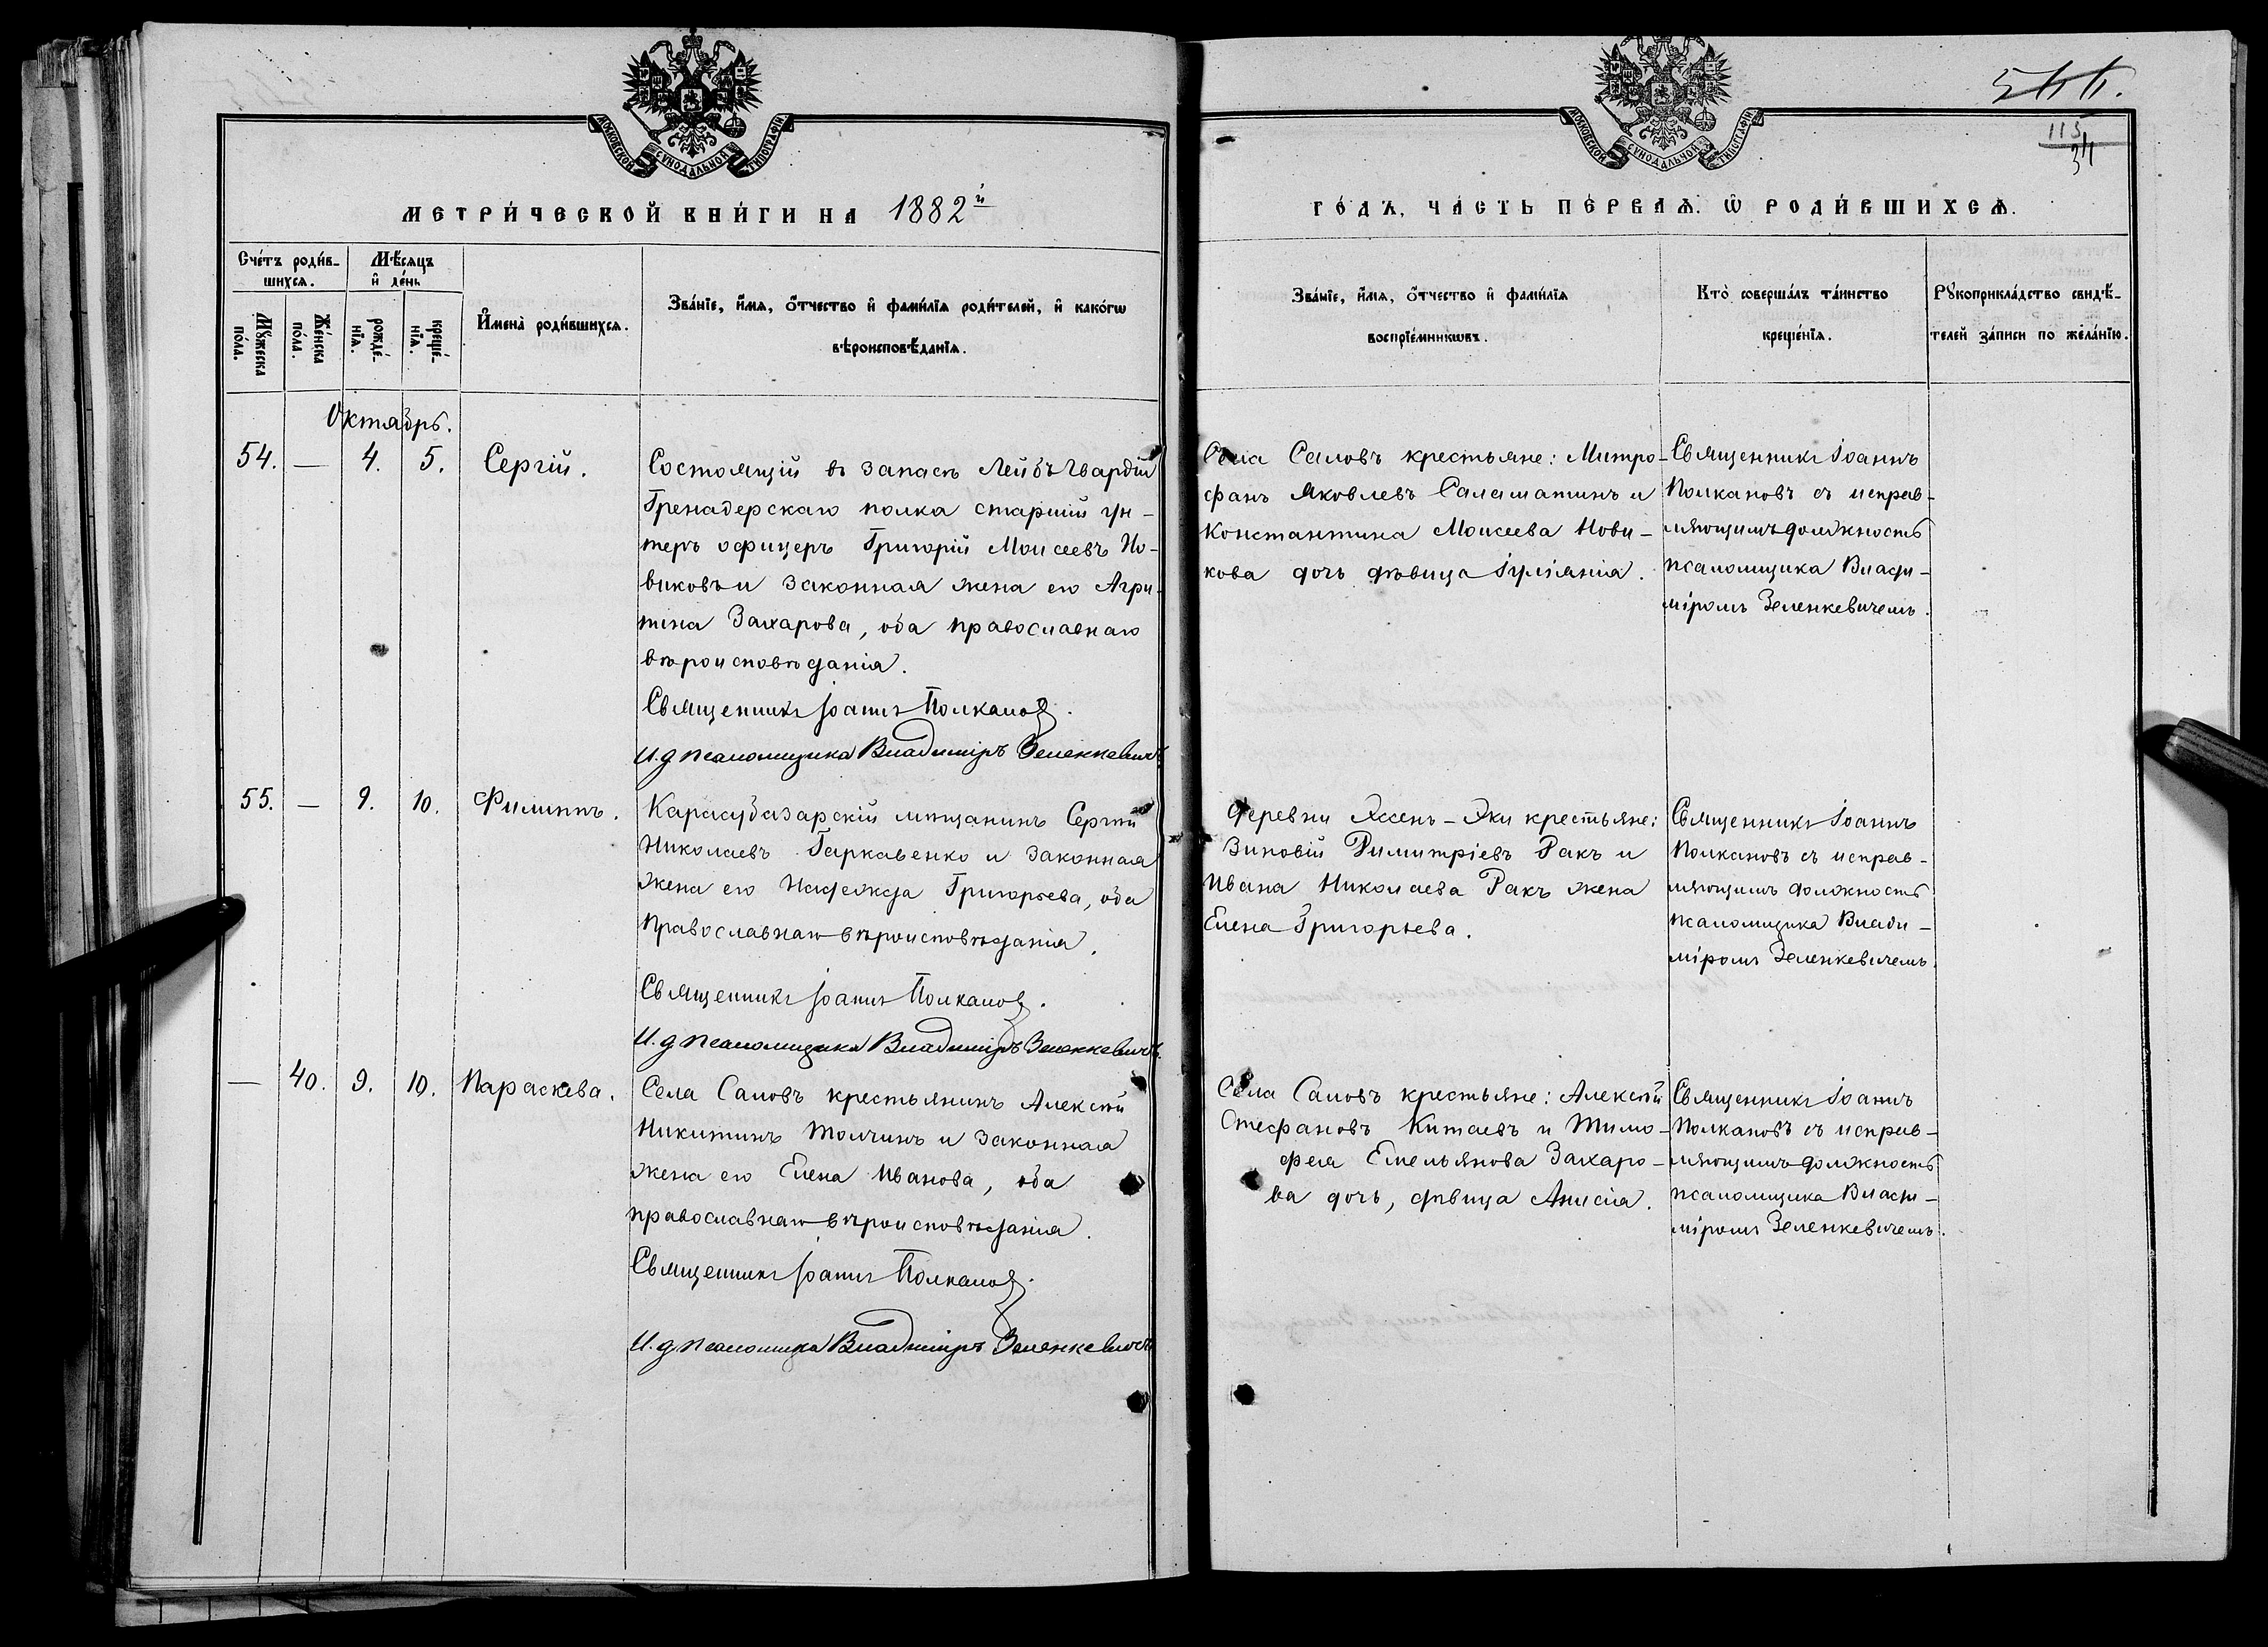 МОСКОВСКОЙ СѴНОДАЛЬНОЙ ТИПОГРАФІИ
МЕТРИ́ЧЕСКОЙ КНИ́ГИ НА 1882й
Сче́тъ роди́в-
шихся.
Мѣ́сяцъ
и҆ де́нь
Мꙋ́жеска
по́ла.
Же́нска
по́ла.
рожде́-
нїя.
креще́-
нїя.
И҆мена̀ роди́вшихся.
Зва́нїе, и҆́мя, ѻ҆́тчество и҆ фами́лїя роди́телей, и҆ како́гѡ
вѣроисповѣ́данїя.
Октябрь.
54. — 4. 5. Сергій.
Состоящій въ запасѣ Лейбъ Гвардіи
Гренадерскаго полка старшій ун-
теръ офицеръ Григорій Моисеевъ Но-
виковъ и законная жена его Агри-
пина Захарова, оба православнаго
вѣроисповѣданія.
Священникъ Іоаннъ Полкановъ.
И. д псаломщика Владиміръ Зеленкевичъ
55. — 9. 10. Филиппъ.
Карасубазарскій мѣщанинъ Сергѣй
Николаевъ Гаркавенко и законная
жена его Надежда Григорьева, оба
православнаго вѣроисповѣданія.
Священникъ Іоаннъ Полкановъ.
И. д псаломщика Владиміръ Зеленкевичъ.
— 40. 9. 10. Параскева.
Села Саловъ крестьянинъ Алексѣй
Никитинъ Толчинъ и законная
жена его Елена Иванова, оба
православнаго вѣроисповѣданія.
Священникъ Іоаннъ Полкановъ.
И. д псаломщика Владиміръ Зеленкевичъ
МОСКОВСКОЙ СѴНОДАЛЬНОЙ ТИПОГРАФІИ
115
ГО́ДЪ, ЧА́СТЬ ПЕ́РВАѦ. Ѡ҆ РОДИ́ВШИХСѦ.
Зва́нїе, и҆́мя, ѻ҆́тчество и҆ фами́лїя
воспрїе́мникѡвъ.
Кто̀ соверша́лъ та́инство
креще́нїя.
Рꙋкоприкла́дство свидѣ́-
телей за́писи по жела́нїю.
Села Саловъ крестьяне: Митро-
фанъ Яковлевъ Саламатинъ и
Константина Моисеева Нови-
кова дочь дѣвица Іуліанія.
Священникъ Іоаннъ
Полкановъ съ исправ-
ляющимъ должность
псаломщика Влади-
міромъ Зеленкевичемъ.
Деревни Ясенъ-Эки крестьяне:
Зиновій Димитріевъ Ракъ и
Ивана Николаева Ракъ жена
Елена Григорьева.
Священникъ Іоаннъ
Полкановъ съ исправ-
ляющимъ должность
псаломщика Влади-
міромъ Зеленкевичемъ.
Села Саловъ крестьяне: Алексѣй
Стефановъ Китаевъ и Тимо-
фея Емельянова Захаро-
ва дочь, дѣвица Анисія.
Священникъ Іоаннъ
Полкановъ съ исправ-
ляющимъ должность
псаломщика Влади-
міромъ Зеленкевичемъ.